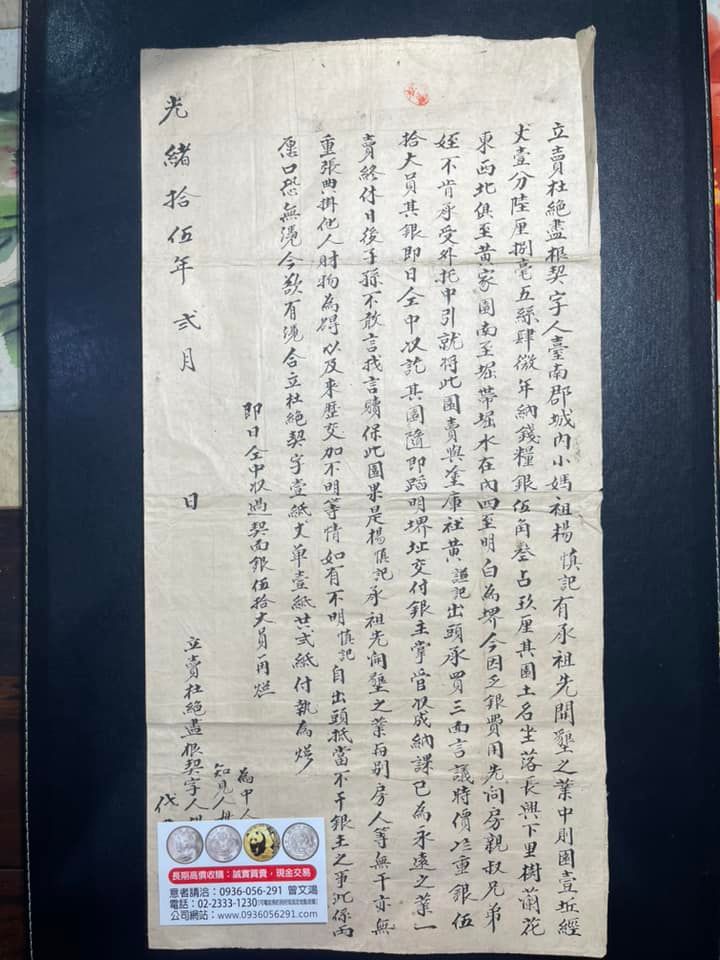 立賣杜絕盡根契字人臺南郡城內小媽祖楊慎記有承祖先開墾之業中則園壹坵經
丈壹分陸厘捌毫五絲肆微年納錢糧銀伍角叁占玖厘其園土名坐落長興下里樹蘭花
東西北俱至黃家園南至堀帶堀水在內四至明白為界今因乏銀費用先问房親叔兄弟
姪不肯承受外托中引就將此園賣與塗庫社黃謚記出頭承買三面言議時價平重銀伍
拾大員其銀即日仝中收訖其園隨即踏明界址交付銀主掌管收成納課已為永遠之業一
賣終休日後子孫不敢言找言贖保此園果是楊慎記承祖先開墾之業與別房人等無干亦無
重張典掛他人財物為碍以及來歷交加不明等情如有不明慎記自出頭抵當不干銀主之事此係兩
愿口恐無凴今欲有凴合立杜絕契字壹紙丈單壹紙共弍紙付執為炤
即日仝中收過契面銀伍拾大員再炤
為中人
知見人
立賣杜絕盡根契字人
代
光緒拾伍年弍月 日
長期高價收購：誠實買賣，現金交易
意者請洽：0936-056-291 曾文鴻
電話：02-2333-1230
公司網站：www.0936056291.com